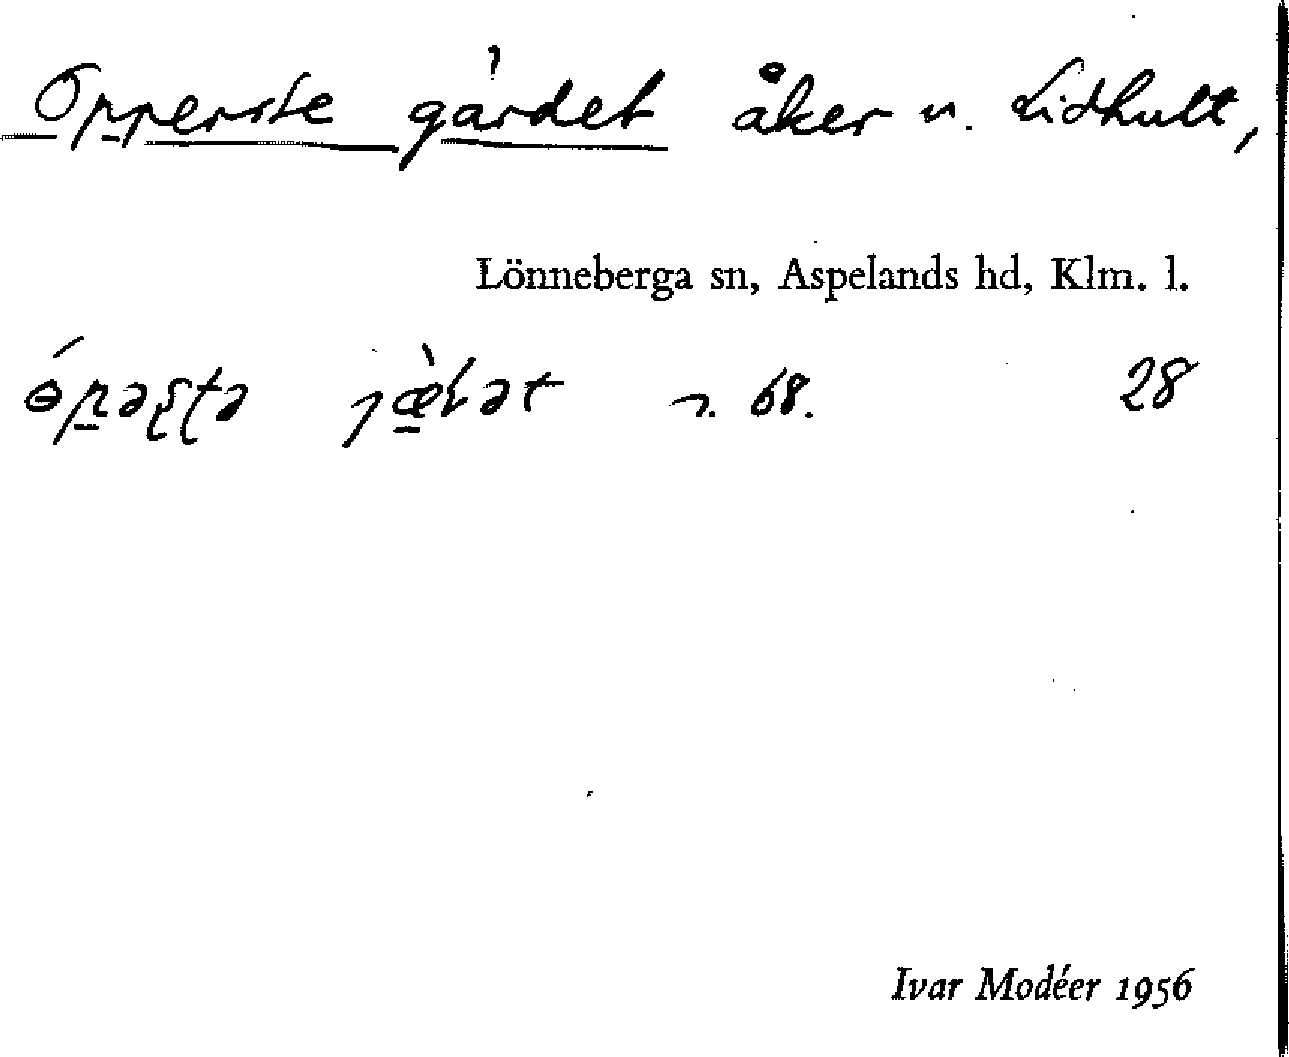 Öpperste gärdet åker u. Lidhult,
Lönneberga sn, Aspelands hd, Klm. l.
s. 68. 28
Ivar Modéer 1956